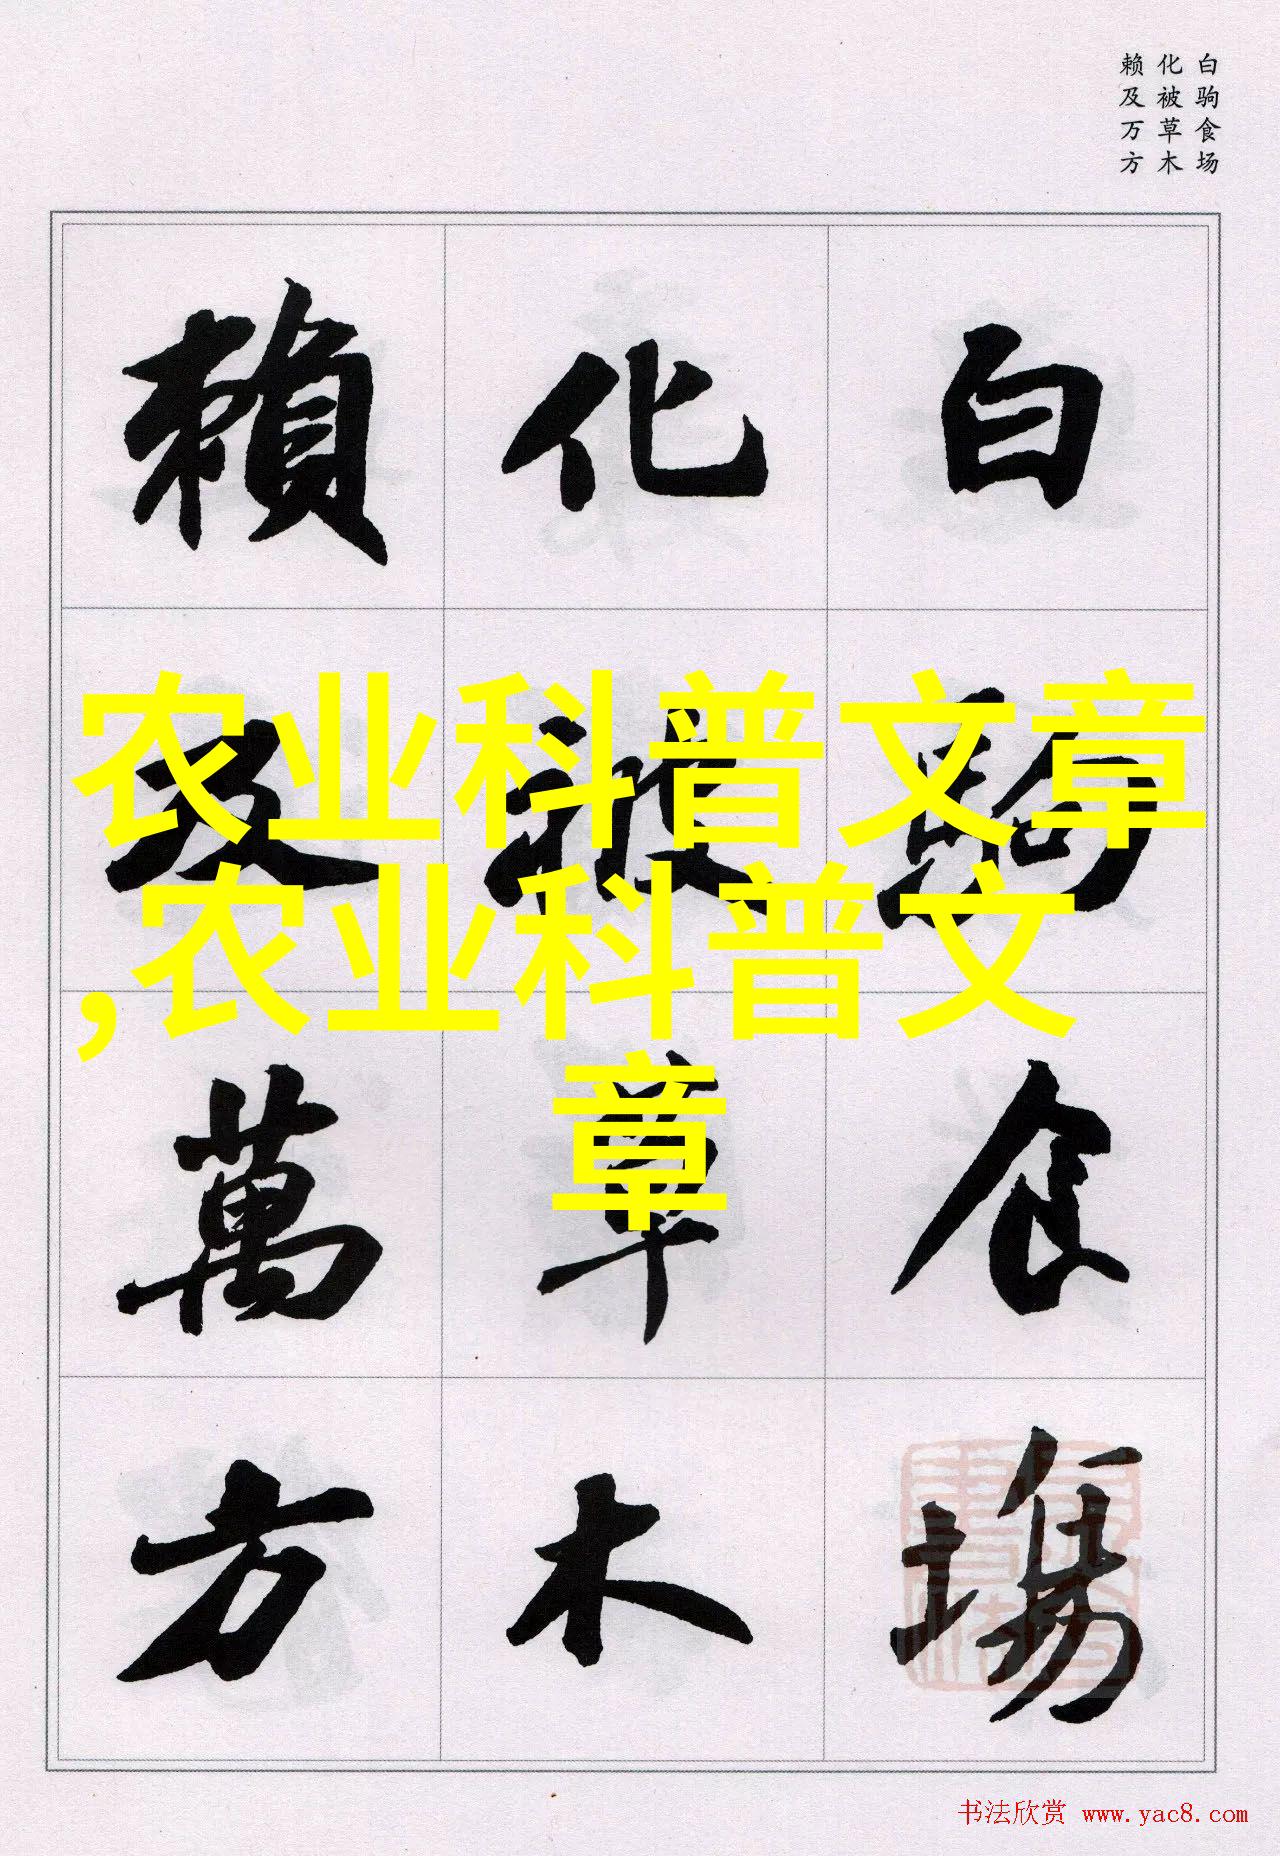 白驹食场
化被草木
赖及万方
白駒食場
化被草木
賴及萬方
农业科普文章
,农业科普文
章
书法欣赏 www.yac8.com